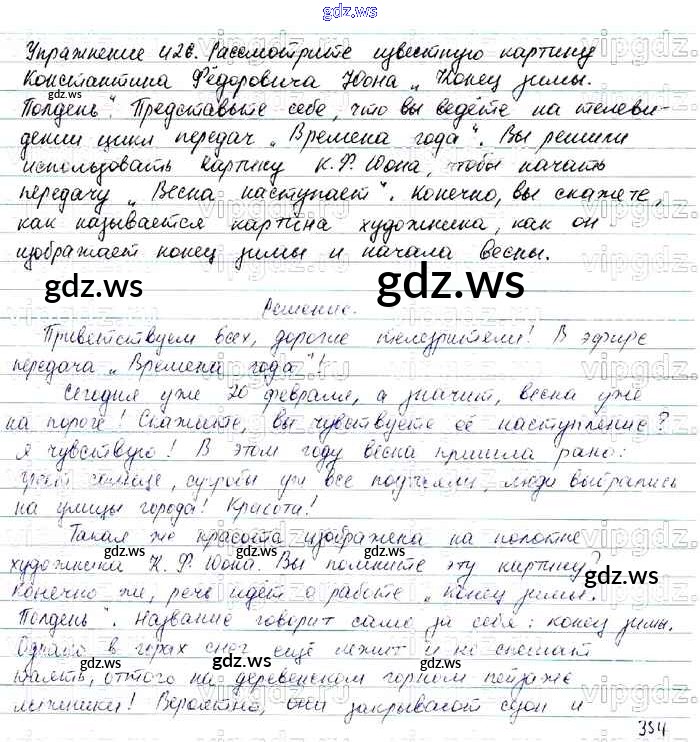 gdz.ws
Упражнение 426. Рассмотрите известную картину
Константина Фёдоровича Юона „Конец зимы.
Полдень". Представьте себе, что вы ведёте на телеви-
дении цикл передач „Времена года". Вы решили
использовать картину К.Ф. Юона, чтобы начать
передачу „Весна наступает". Конечно, вы скажете,
как называется картина художника, как он
изображает конец зимы и начала весны.
gdz.ws gdz.ws
Решение.
Приветствуем всех, дорогие телезрители! В эфире
передача „Времена года"!
Сегодня уже 20 февраля, а значит, весна уже
на пороге! Скажите, вы чувствуете её наступление?
Я чувствую! В этом году весна пришла рано:
греет солнце, сугробы уже все подтаяли, люди выбрались
на улицы города! Красота!
Такая же красота изображена на полотне
gdz.ws gdz.ws
художника К.Ф. Юона. Вы помните эту картину?
Конечно же, речь идёт о работе „Конец зимы.
Полдень". Название говорит само за себя: конец зимы.
Однако в горах снег ещё лежит и не спешит
gdz.ws gdz.ws
таять, оттого на деревенском горном пейзаже
лыжники! Вероятно, они закрывают сезон и
354
gdz.ws